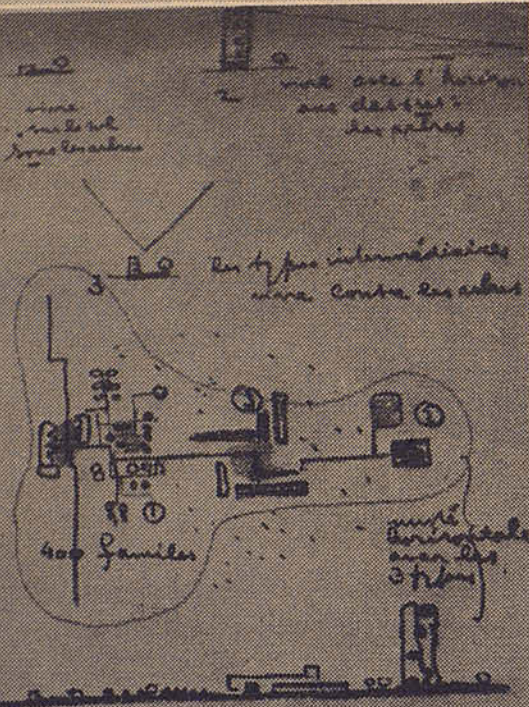 vivre
sur le sol
sous les arbres
2
vivre avec l'horizon
au dessus
des arbres
3
les types intermédiaires
vivre contre les arbres
3
2
8
1
400 familles
unité
horizontale
avec les
3 types